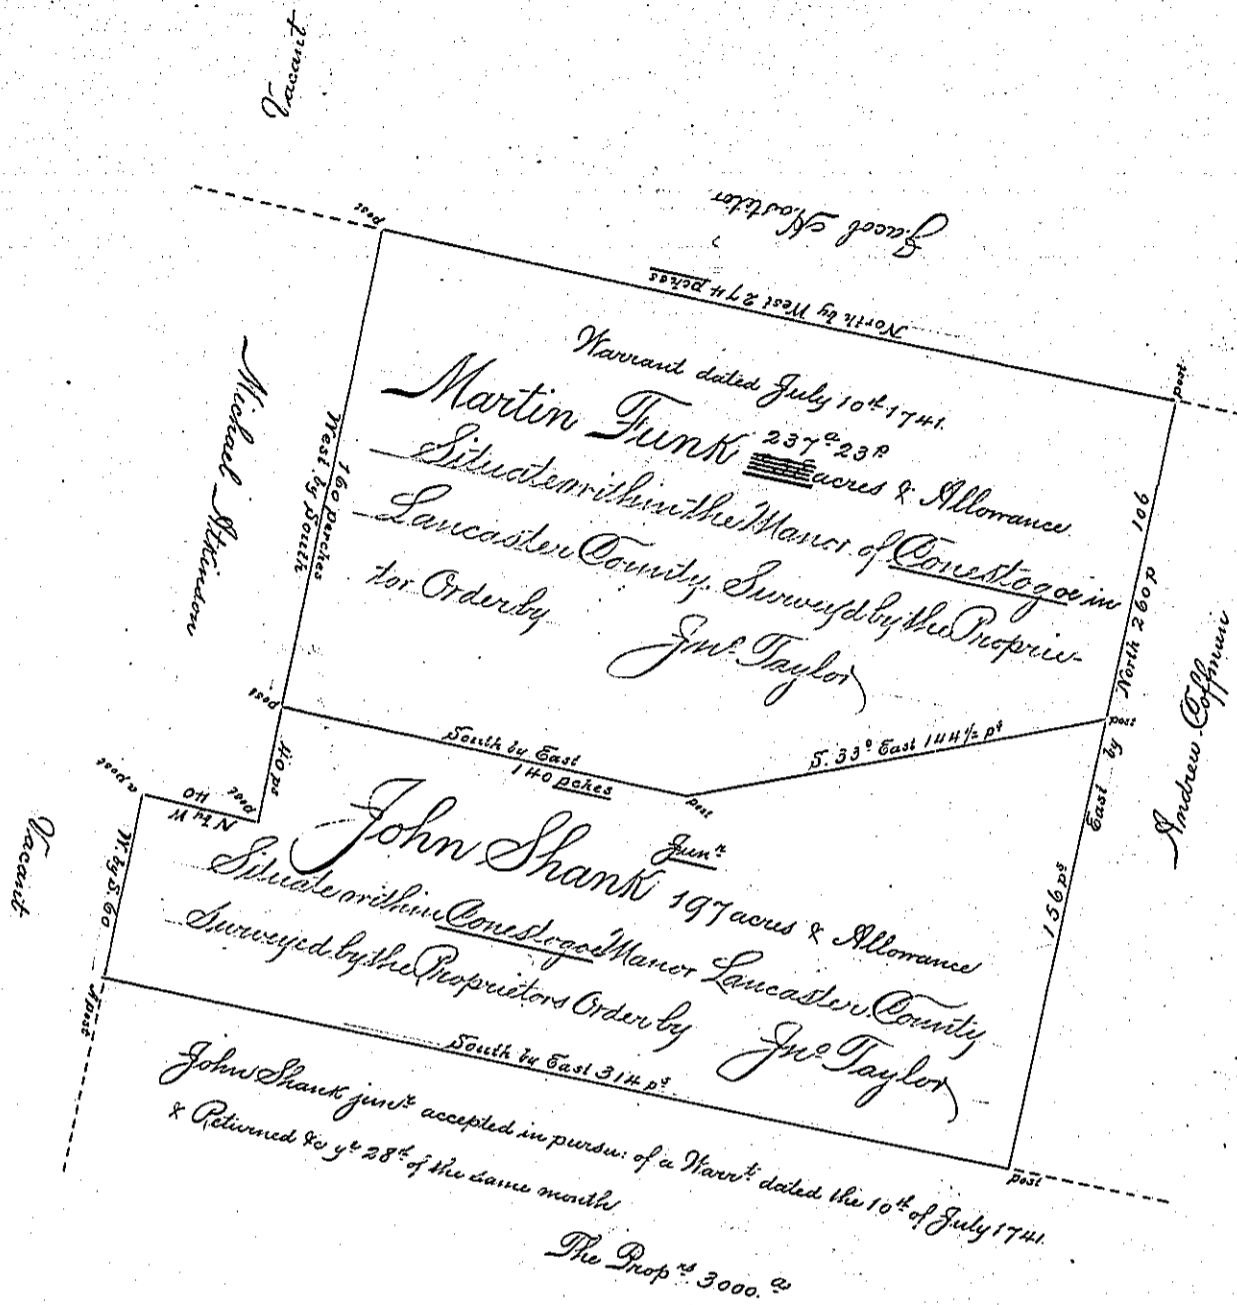 Vacant
Jacob Hostitor
post
North by West 274 pches
post
Warrant dated July 10th 1741.
Martin Funk 237a 23p
acres & Allowance
Situate within the Manor of Conestogoe in
Lancaster County. Surveyd by the Proprie-
tor Order by
Jno. Taylor
Michael Atkinson
160 perches
West by South
106
East by North 260 p
Andrew Coffman
post
South by East
140 pches
post
S. 33° East 144 1/2 ps
post
40 ps
a post
40
N by W
post
Vacant
W. by S. 60
John Shank Junr
197 acres & Allowance
Situate within Conestogoe Manor Lancaster County
Surveyed by the Proprietors Order by
Jno. Taylor
156 ps
A post
South by East 314 ps
post
John Shank junr. accepted in pursu: of a Warrt. dated the 10th of July 1741.
& Returned &c ye 28th of the same month
The Proprs 3000. as